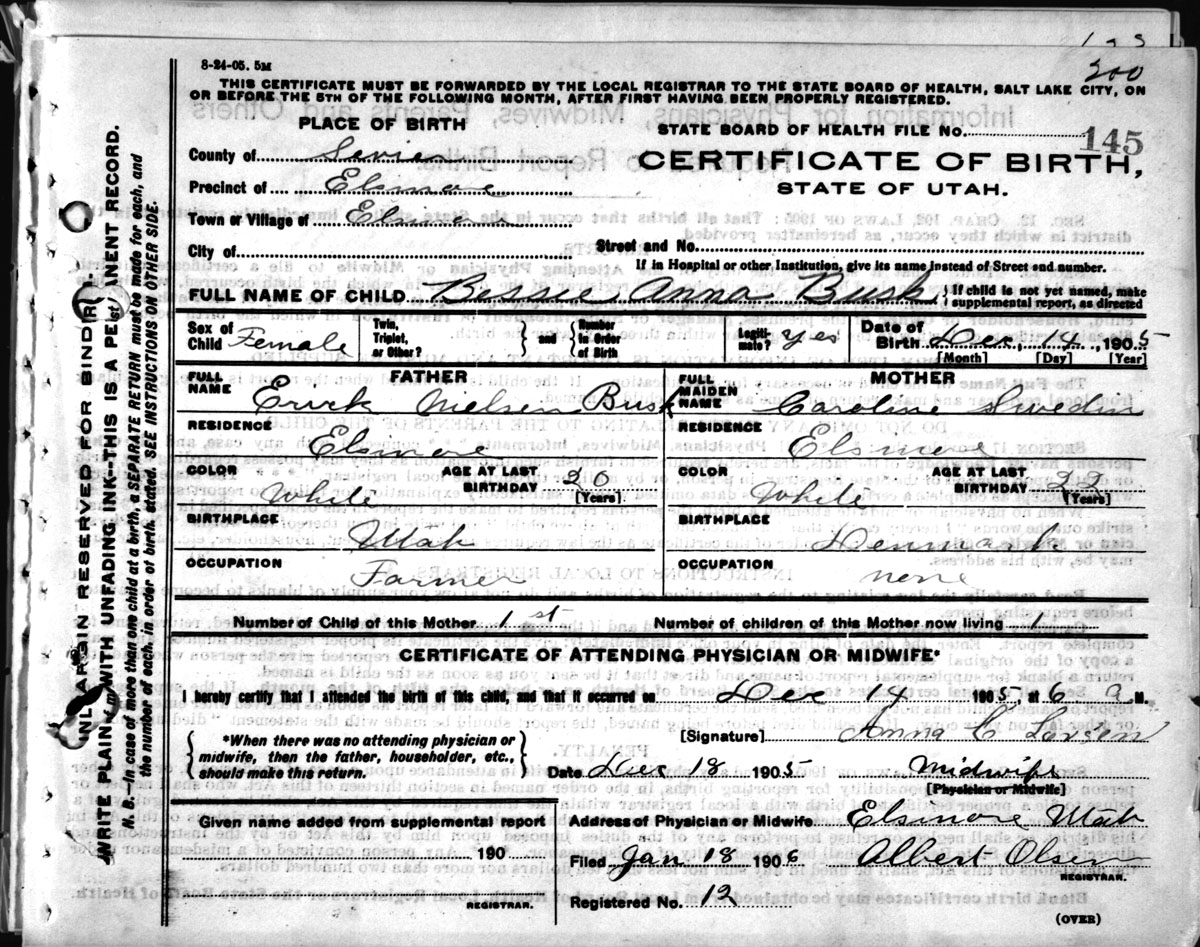 8-24-05. 5M
200
THIS CERTIFICATE MUST BE FORWARDED BY THE LOCAL REGISTRAR TO THE STATE BOARD OF HEALTH, SALT LAKE CITY, ON
OR BEFORE THE 5TH OF THE FOLLOWING MONTH, AFTER FIRST HAVING BEEN PROPERLY REGISTERED.
PLACE OF BIRTH
STATE BOARD OF HEALTH FILE No. 145
County of Sevier
CERTIFICATE OF BIRTH,
STATE OF UTAH.
Precinct of Elsinore
Town or Village of Elsinore
City of
Street and No.
If in Hospital or other Institution, give its name instead of Street and number.
FULL NAME OF CHILD Bessie Anna Busk } If child is not yet named, make supplemental report, as directed
Sex of Child Female
Twin, Triplet, or Other? } and { Number in Order of Birth
Legitimate? yes
Date of Birth Dec, 14, 1905
[Month] [Day] [Year]
FATHER
FULL NAME Erick Nielsen Busk
RESIDENCE Elsinore
COLOR White AGE AT LAST BIRTHDAY 26 [Years]
BIRTHPLACE Utah
OCCUPATION Farmer
MOTHER
FULL MAIDEN NAME Caroline Swedin
RESIDENCE Elsinore
COLOR White AGE AT LAST BIRTHDAY 22 [Years]
BIRTHPLACE Denmark
OCCUPATION none
Number of Child of this Mother 1st Number of children of this Mother now living 1
CERTIFICATE OF ATTENDING PHYSICIAN OR MIDWIFE*
I hereby certify that I attended the birth of this child, and that it occurred on Dec 14 1905 at 6 a M.
{ *When there was no attending physician or
midwife, then the father, householder, etc.,
should make this return. }
[Signature] Anna C Larsen
Date Dec 18 1905 Midwife
[Physician or Midwife]
Given name added from supplemental report
190
REGISTRAR.
Address of Physician or Midwife Elsinore Utah
Filed Jan 18 1906 Albert Olsen
REGISTRAR.
Registered No. 12
(OVER)
MARGIN RESERVED FOR BINDING
WRITE PLAINLY WITH UNFADING INK--THIS IS A PERMANENT RECORD.
N. B.--In case of more than one child at a birth, a SEPARATE RETURN must be made for each, and
the number of each, in order of birth, stated. SEE INSTRUCTIONS ON OTHER SIDE.